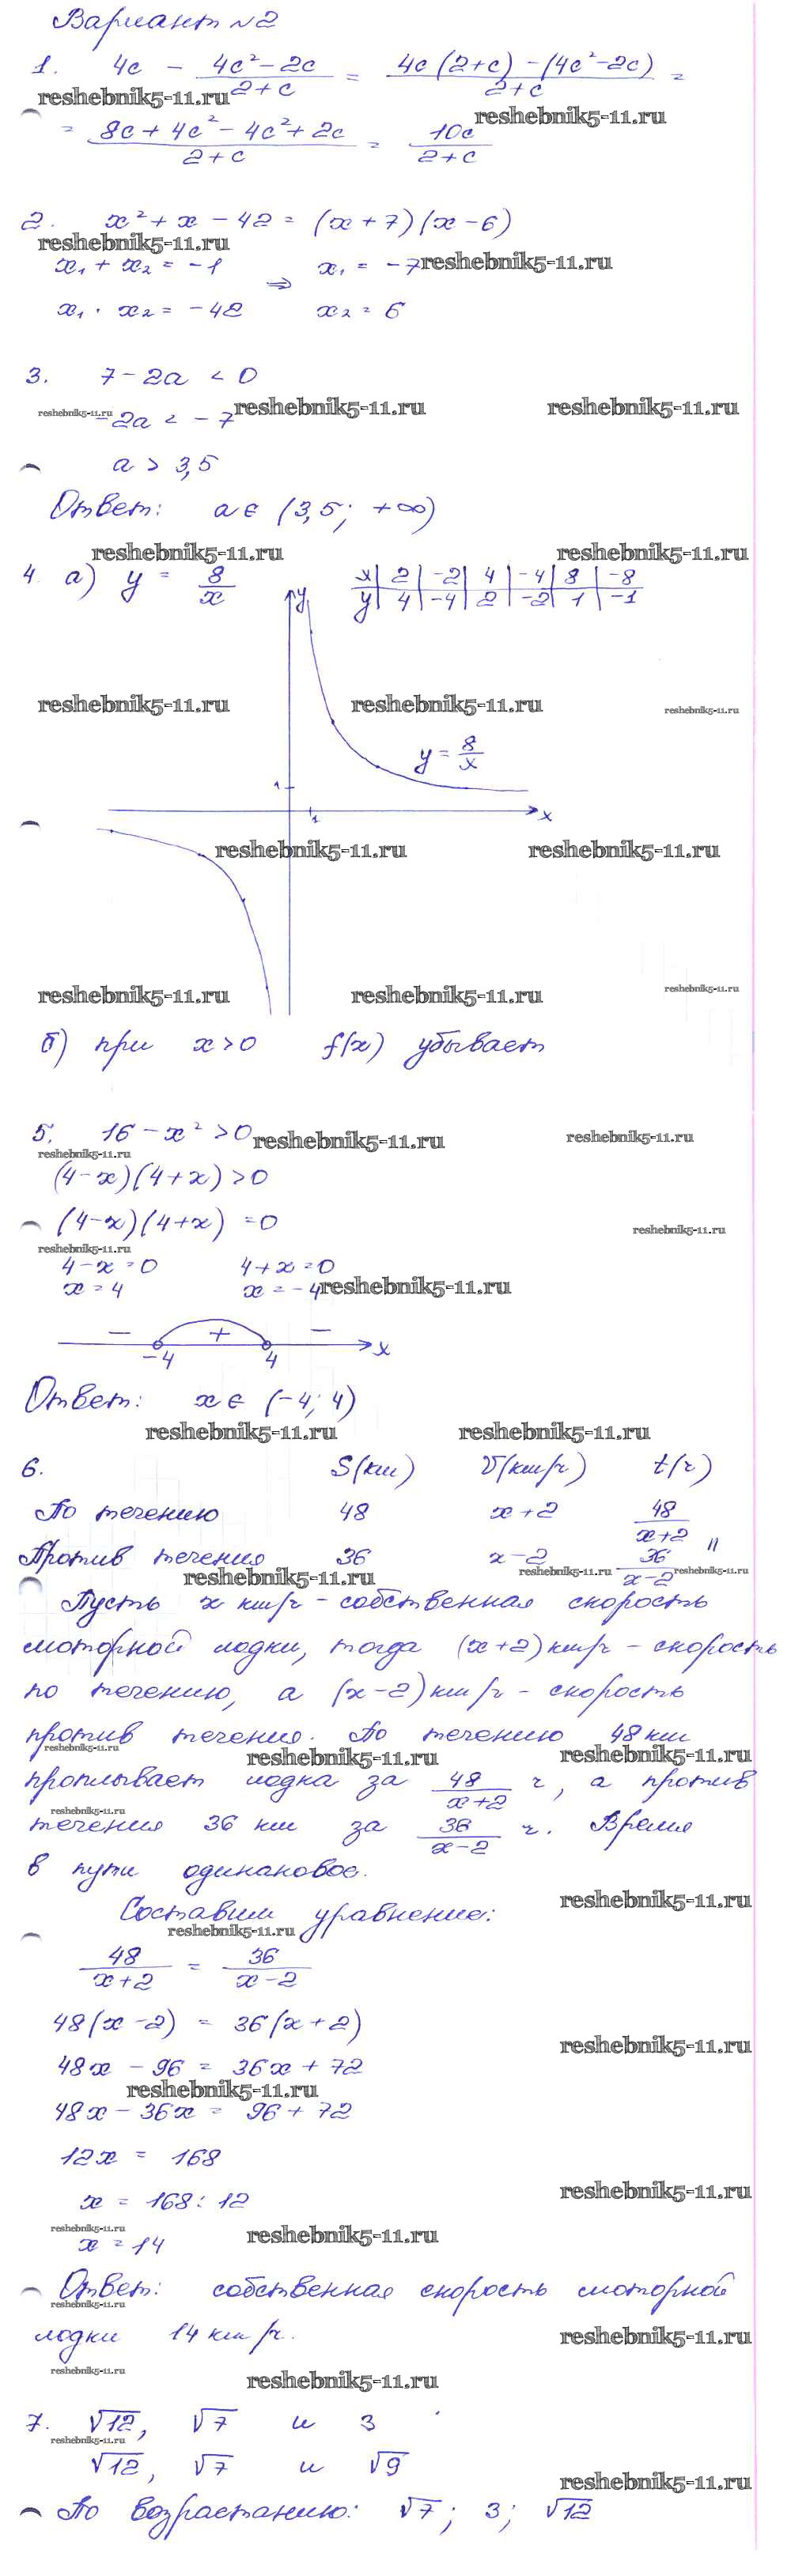 Вариант №2
1. 4c - (4c² - 2c)/(2+c) = (4c(2+c) - (4c² - 2c))/(2+c) =
reshebnik5-11.ru reshebnik5-11.ru
= (8c + 4c² - 4c² + 2c)/(2+c) = 10c/(2+c)
2. x² + x - 42 = (x+7)(x-6)
reshebnik5-11.ru reshebnik5-11.ru
x₁ + x₂ = -1 ⇒ x₁ = -7
x₁ · x₂ = -42 x₂ = 6
3. 7 - 2a < 0
reshebnik5-11.ru reshebnik5-11.ru reshebnik5-11.ru
-2a < -7
a > 3,5
Ответ: a ∈ (3,5; +∞)
reshebnik5-11.ru reshebnik5-11.ru
4 a) y = 8/x
x | 2 | -2 | 4 | -4 | 8 | -8
y | 4 | -4 | 2 | -2 | 1 | -1
y
reshebnik5-11.ru reshebnik5-11.ru reshebnik5-11.ru
y = 8/x
1
1 x
reshebnik5-11.ru reshebnik5-11.ru
reshebnik5-11.ru reshebnik5-11.ru reshebnik5-11.ru
б) при x>0 f(x) убывает
5. 16 - x² > 0
reshebnik5-11.ru reshebnik5-11.ru
reshebnik5-11.ru
(4-x)(4+x) > 0
(4-x)(4+x) = 0
reshebnik5-11.ru
reshebnik5-11.ru
4-x = 0 4+x = 0
x = 4 x = -4
reshebnik5-11.ru
- + -
-4 4 x
Ответ: x ∈ (-4; 4)
reshebnik5-11.ru reshebnik5-11.ru
6. S(км) V(км/ч) t(ч)
По течению 48 x+2 48/(x+2)
||
Против течения 36 x-2 36/(x-2)
reshebnik5-11.ru reshebnik5-11.ru reshebnik5-11.ru
Пусть x км/ч - собственная скорость
моторной лодки, тогда (x+2) км/ч - скорость
по течению, а (x-2) км/ч - скорость
против течения. По течению 48 км
reshebnik5-11.ru reshebnik5-11.ru reshebnik5-11.ru
проплывает лодка за 48/(x+2) ч, а против
reshebnik5-11.ru
течения 36 км за 36/(x-2) ч. Время
в пути одинаковое.
reshebnik5-11.ru
Составим уравнение:
reshebnik5-11.ru
48/(x+2) = 36/(x-2)
48(x-2) = 36(x+2)
reshebnik5-11.ru
48x - 96 = 36x + 72
reshebnik5-11.ru
48x - 36x = 96 + 72
12x = 168
reshebnik5-11.ru
x = 168 : 12
reshebnik5-11.ru reshebnik5-11.ru
x = 14
Ответ: собственная скорость моторной
reshebnik5-11.ru
лодки 14 км/ч.
reshebnik5-11.ru
reshebnik5-11.ru
reshebnik5-11.ru
7. √12, √7 и 3
reshebnik5-11.ru
√12, √7 и √9
reshebnik5-11.ru
По возрастанию: √7; 3; √12